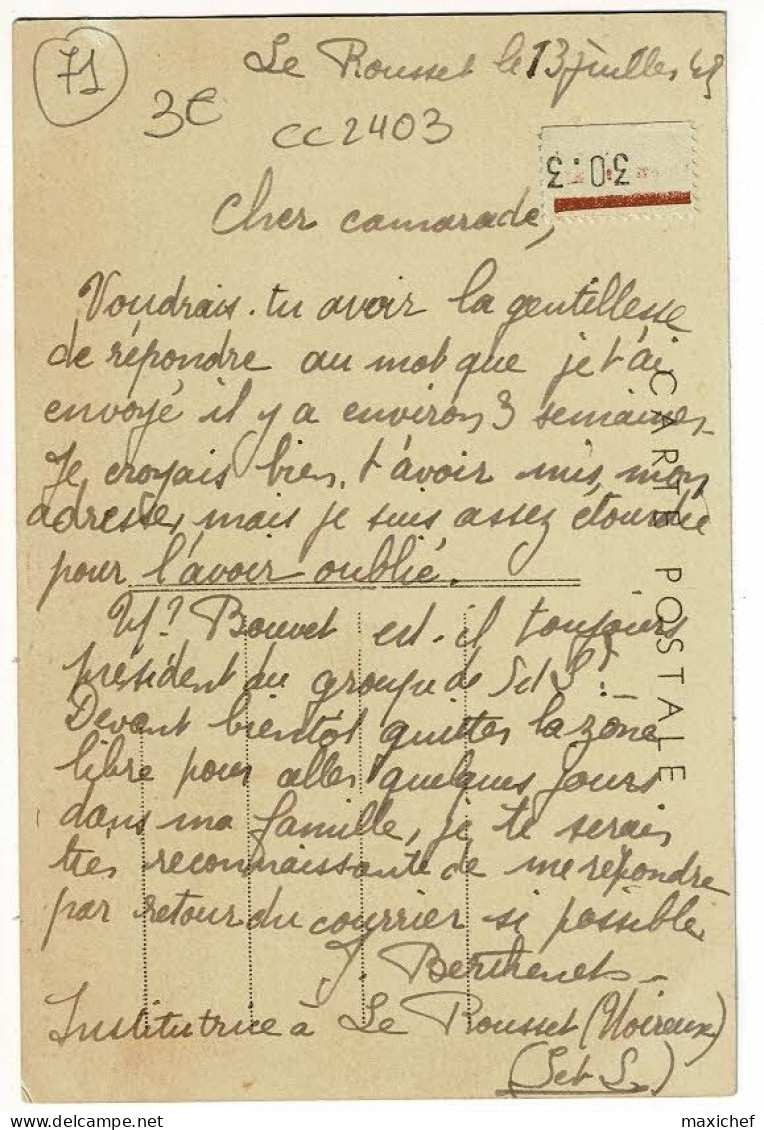 71
Le Rousset le 13 juillet 43
3€
CC 2403
30.3
Cher camarade,
Voudrais-tu avoir la gentillesse
de répondre au mot que je t'ai
envoyé il y a environ 3 semaines
Je croyais bien t'avoir mis mon
adresse, mais je suis assez étourdie
pour l'avoir oublié.
Bouvet est-il toujours
président du groupe de S et L ?
Devant bientôt quitter la zone
libre pour aller quelques jours
dans ma famille, je te serais
très reconnaissante de me répondre
par retour du courrier si possible
J. Berthenet
Institutrice à Le Rousset
(S et L)
CARTE POSTALE
maxichef